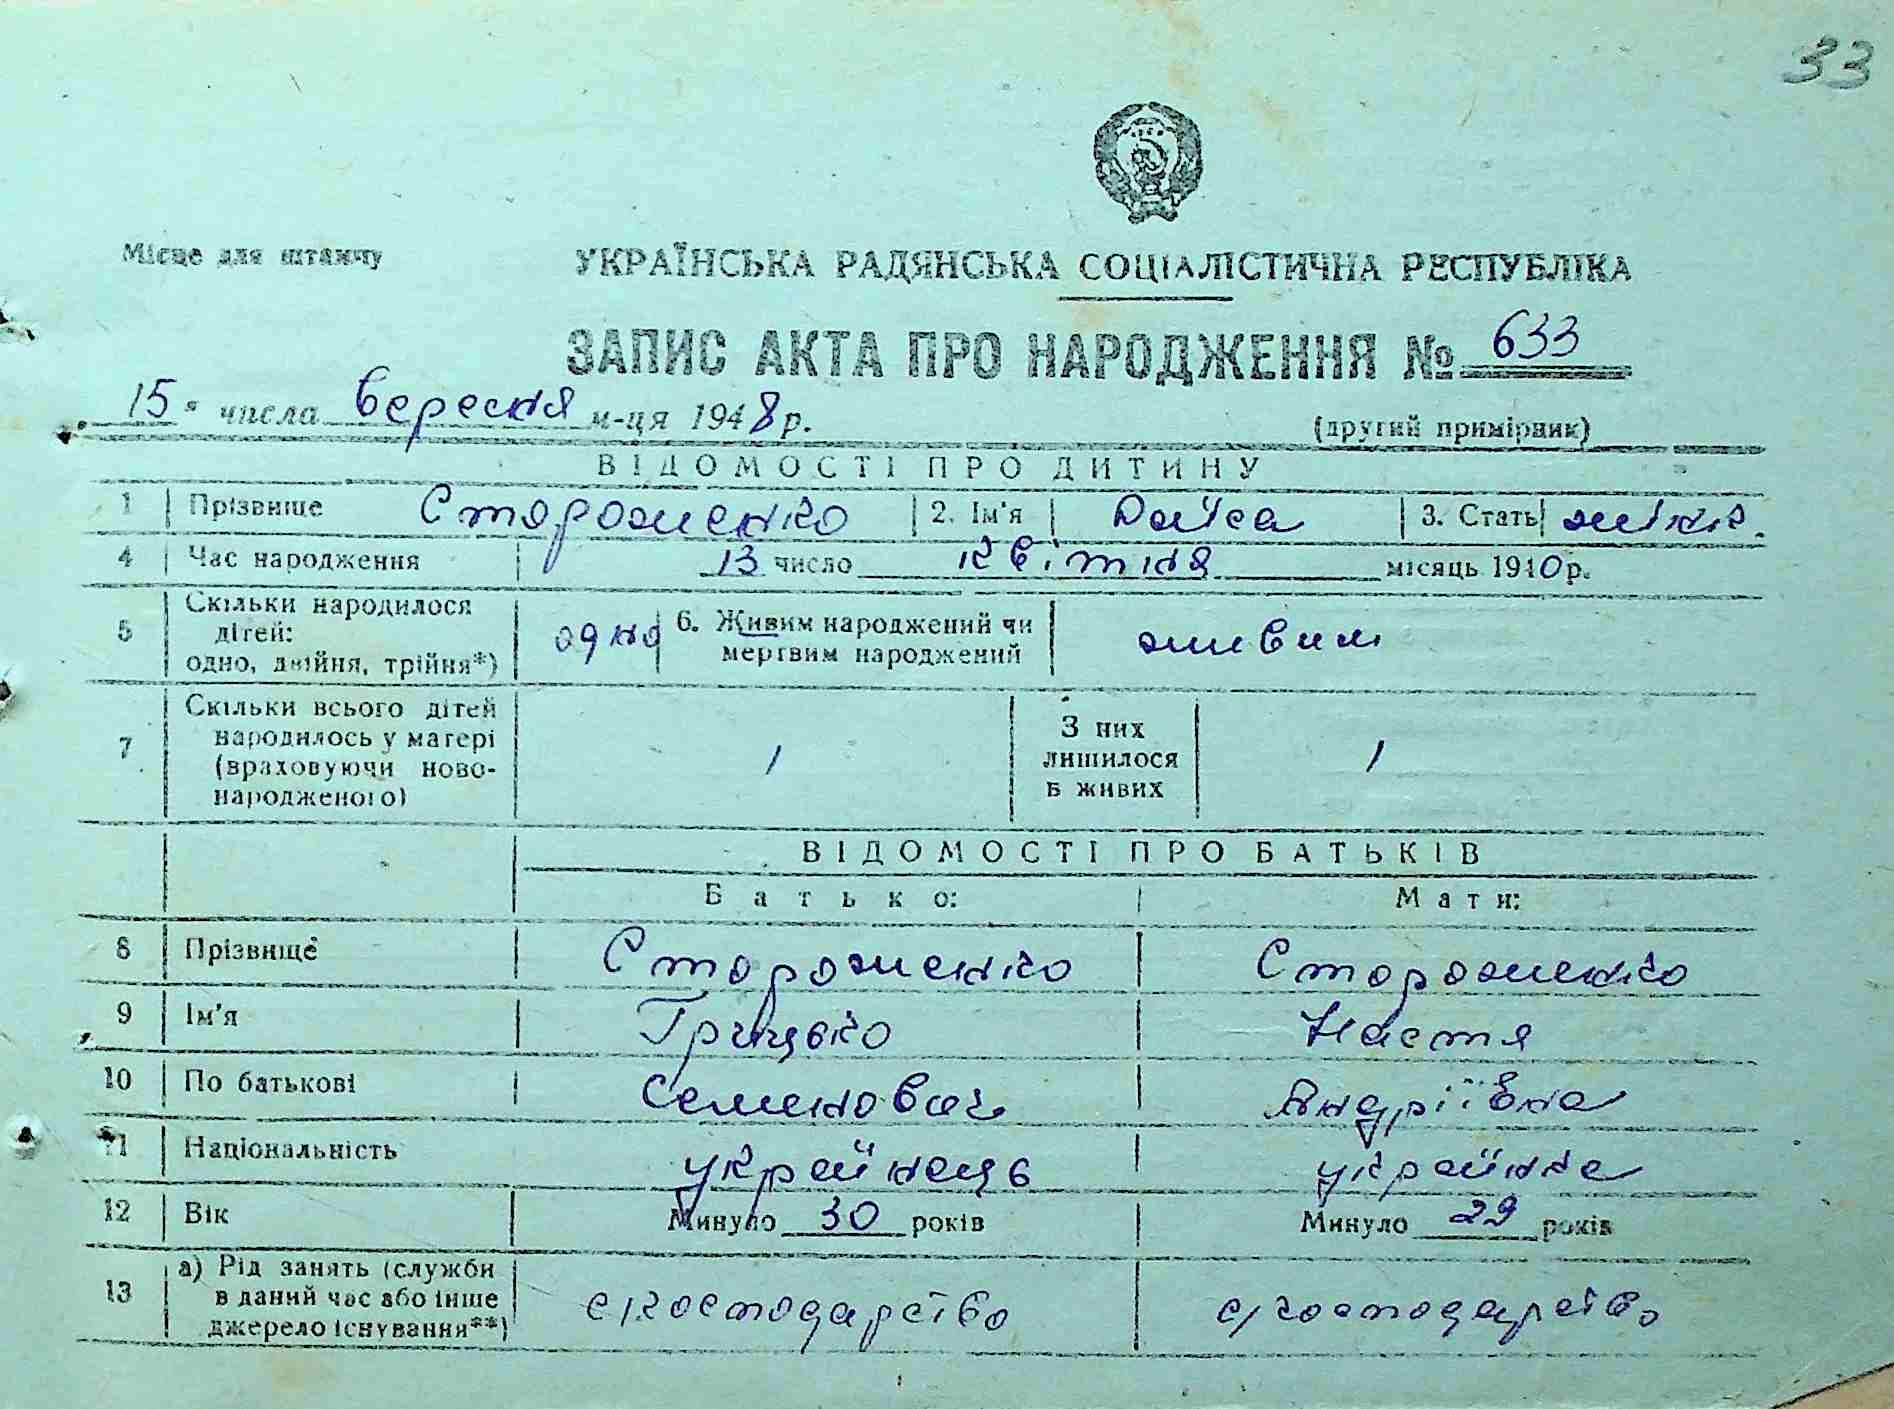 33
Місце для штампу
УКРАЇНСЬКА РАДЯНСЬКА СОЦІАЛІСТИЧНА РЕСПУБЛІКА
ЗАПИС АКТА ПРО НАРОДЖЕННЯ № 633
15 " числа вересня м-ця 1948 р.
(другий примірник)
ВІДОМОСТІ ПРО ДИТИНУ
1 Прізвище Стороженко 2. Ім'я Раїса 3. Стать жінк.
4 Час народження 13 число квітня місяць 1940 р.
5 Скільки народилося дітей: одно, двійня, трійня*) одно 6. Живим народжений чи мертвим народжений живим
7 Скільки всього дітей народилось у матері (враховуючи ново-народженого) 1 З них лишилося в живих 1
ВІДОМОСТІ ПРО БАТЬКІВ
Батько: Мати:
8 Прізвище Стороженко Стороженко
9 Ім'я Грицько Настя
10 По батькові Семенович Андріївна
11 Національність українець українка
12 Вік Минуло 30 років Минуло 29 років
13 а) Рід занять (служби в даний час або інше джерело існування**) с/господарство с/господарство